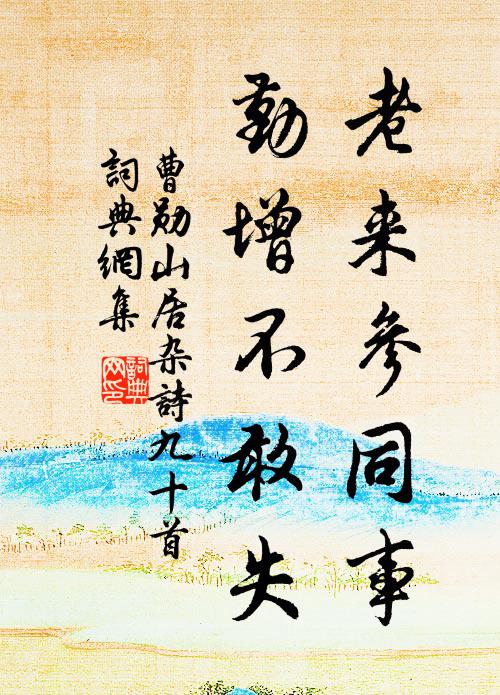 老来参同事
勤增不敢失
曹勋山居杂詩九十首
詞典網集
詞典网印